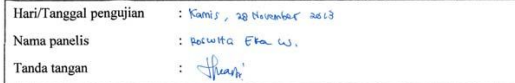 Hari/Tanggal pengujian : Kamis, 28 November 2013
Nama panelis : Roswita Eka W.
Tanda tangan :